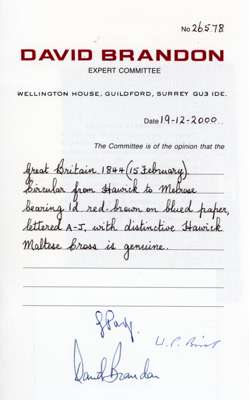 No 26578
DAVID BRANDON
EXPERT COMMITTEE
WELLINGTON HOUSE, GUILDFORD, SURREY GU3 IDE.
Date 19-12-2000.
The Committee is of the opinion that the
Great Britain 1844 (15 February)
Circular from Hawick to Melrose
bearing 1d red-brown on blued paper,
lettered A-J, with distinctive Hawick
Maltese Cross is genuine.
David Brandon